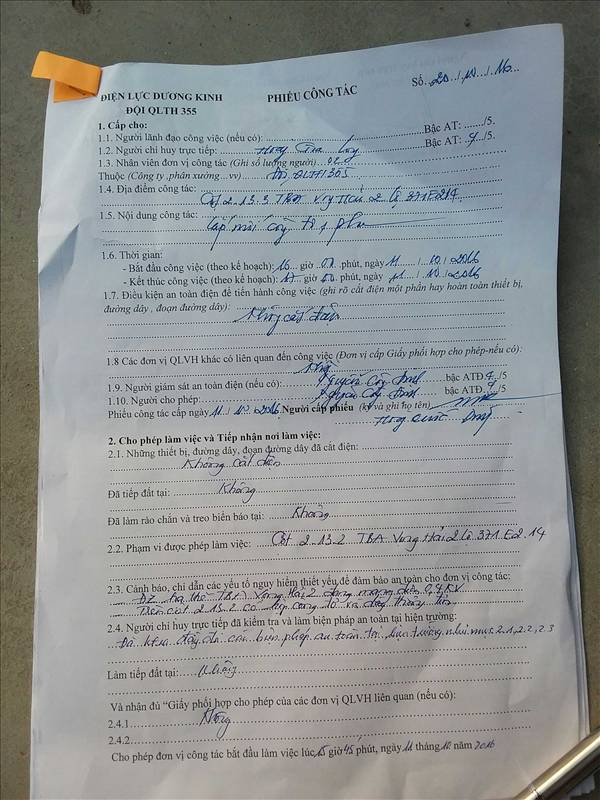 ĐIỆN LỰC DƯƠNG KINH
ĐỘI QLTH 355
PHIẾU CÔNG TÁC
Số: 20 / 10 / 16
1. Cấp cho:
1.1. Người lãnh đạo công việc (nếu có): Bậc AT: /5.
1.2. Người chỉ huy trực tiếp: Bậc AT: /5.
1.3. Nhân viên đơn vị công tác (Ghi số lượng người) 02
Thuộc (Công ty ,phân xưởng… vv) Đội QLTH 355
1.4. Địa điểm công tác: Cột 2.13.2 TBA Vọng Hải 2 lộ 371E2.14
1.5. Nội dung công tác:
Lắp mới công tơ 1 pha
1.6. Thời gian:
- Bắt đầu công việc (theo kế hoạch): 16 giờ 00 phút, ngày 11 / 10 / 2016
- Kết thúc công việc (theo kế hoạch): 17 giờ 00 phút, ngày 11 / 10 / 2016
1.7. Điều kiện an toàn điện để tiến hành công việc (ghi rõ cắt điện một phần hay hoàn toàn thiết bị,
đường dây , đoạn đường dây):
Không cắt điện
1.8 Các đơn vị QLVH khác có liên quan đến công việc (Đơn vị cấp Giấy phối hợp cho phép-nếu có):
Không
1.9. Người giám sát an toàn điện (nếu có): Nguyễn Công bậc ATĐ: /5
1.10. Người cho phép: Nguyễn Công bậc ATĐ: /5
Phiếu công tác cấp ngày 11 / 10 /2016 Người cấp phiếu (ký và ghi họ tên)
2. Cho phép làm việc và Tiếp nhận nơi làm việc:
2.1. Những thiết bị, đường dây, đoạn đường dây đã cắt điện:
Không cắt điện
Đã tiếp đất tại: Không
Đã làm rào chắn và treo biển báo tại: Không
2.2. Phạm vi được phép làm việc: Cột 2.13.2 TBA Vọng Hải 2 lộ 371.E2.14
2.3. Cảnh báo, chỉ dẫn các yếu tố nguy hiểm thiết yếu để đảm bảo an toàn cho đơn vị công tác:
ĐZ hạ thế TBA Vọng Hải 2 đang mang điện 0,4KV
Trên cột 2.13.2 có hộp công tơ và dây thông tin
2.4. Người chỉ huy trực tiếp đã kiểm tra và làm biện pháp an toàn tại hiện trường:
Đã ktra đầy đủ các biện pháp an toàn tại hiện trường như mục 2.1, 2.2, 2.3
Làm tiếp đất tại: Không
Và nhận đủ “Giấy phối hợp cho phép của các đơn vị QLVH liên quan (nếu có):
2.4.1 Không
2.4.2
Cho phép đơn vị công tác bắt đầu làm việc lúc 15 giờ 45 phút, ngày 11 tháng 10 năm 2016